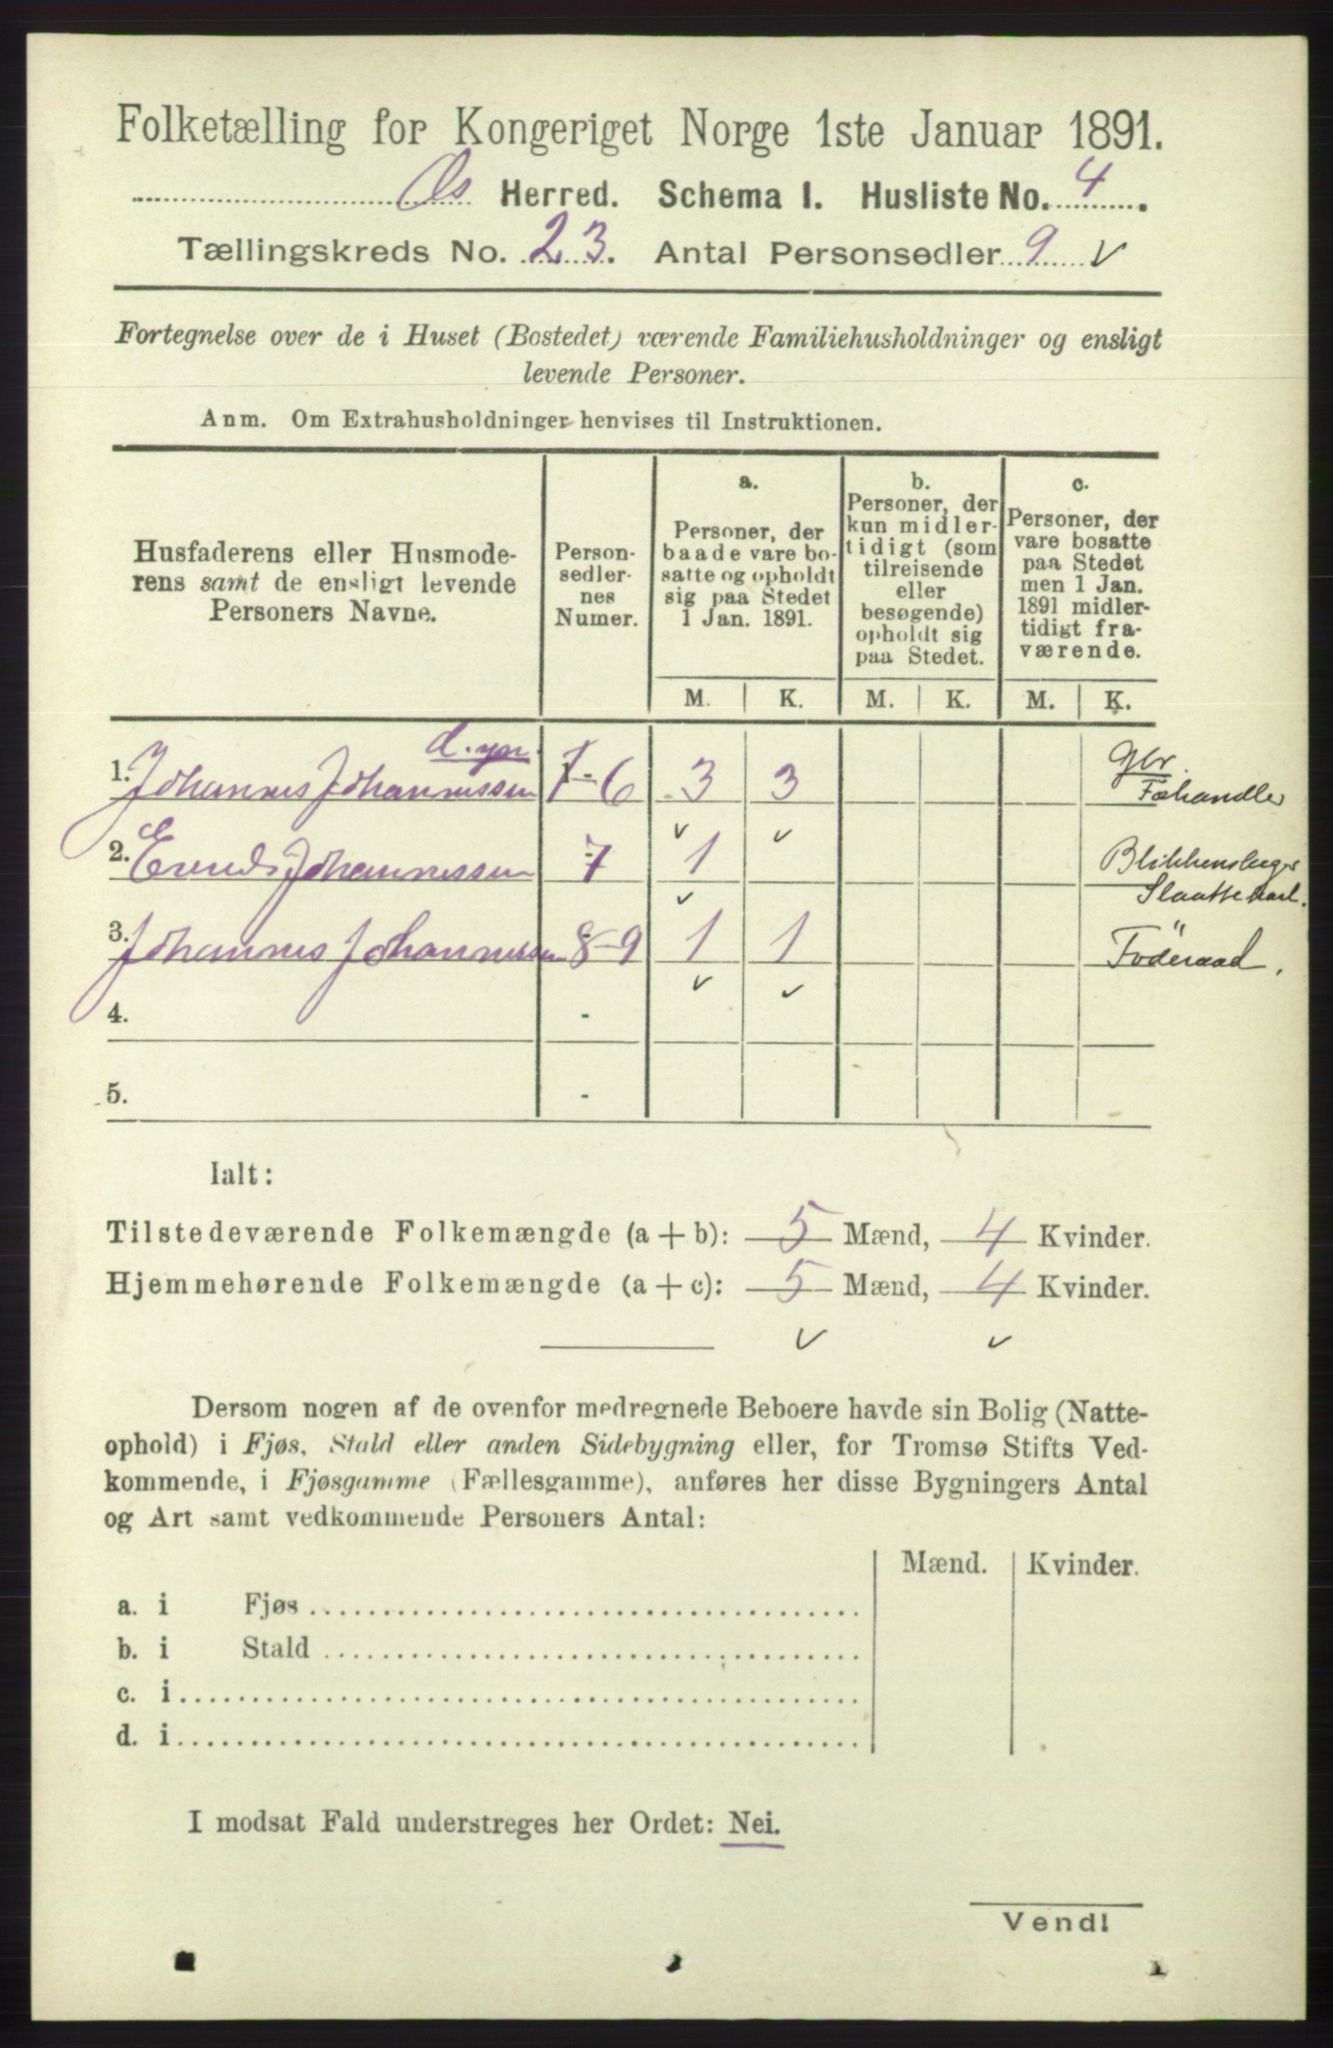 Folketælling for Kongeriget Norge 1ste Januar 1891.
Os Herred. Schema 1. Husliste No. 4.
Tællingskreds No. 23. Antal Personsedler 9 v
Fortegnelse over de i Huset (Bostedet) værende Familiehusholdninger og ensligt
levende Personer.
Anm. Om Extrahusholdninger henvises til Instruktionen.
Husfaderens eller Husmode-
rens samt de ensligt levende
Personers Navne.
Person-
sedler-
nes
Numer.
a.
Personer, der
baade vare bo-
satte og opholdt
sig paa Stedet
1 Jan. 1891.
b.
Personer, der
kun midler-
tidigt (som
tilreisende
eller
besøgende)
opholdt sig
paa Stedet.
c.
Personer, der
vare bosatte
paa Stedet
men 1 Jan.
1891 midler-
tidigt fra-
værende.
M. K. M. K. M. K.
d. yn.
1. Johannes Johannessen 1-6 3 3 Gbr. Fæhandler
2. Johannessen 7 1 Blikkenslager Slaattekarl.
3. Johannes Johannessen 8-9 1 1 Föderaad.
4. -
5. -
Ialt:
Tilstedeværende Folkemængde (a + b): 5 Mænd, 4 Kvinder.
Hjemmehørende Folkemængde (a + c): 5 Mænd, 4 Kvinder.
v v
Dersom nogen af de ovenfor medregnede Beboere havde sin Bolig (Natte-
ophold) i Fjøs, Stald eller anden Sidebygning eller, for Tromsø Stifts Ved-
kommende, i Fjøsgamme (Fællesgamme), anføres her disse Bygningers Antal
og Art samt vedkommende Personers Antal:
Mænd. Kvinder.
a. i Fjøs
b. i Stald
c. i
d. i
I modsat Fald understreges her Ordet: Nei.
Vend!